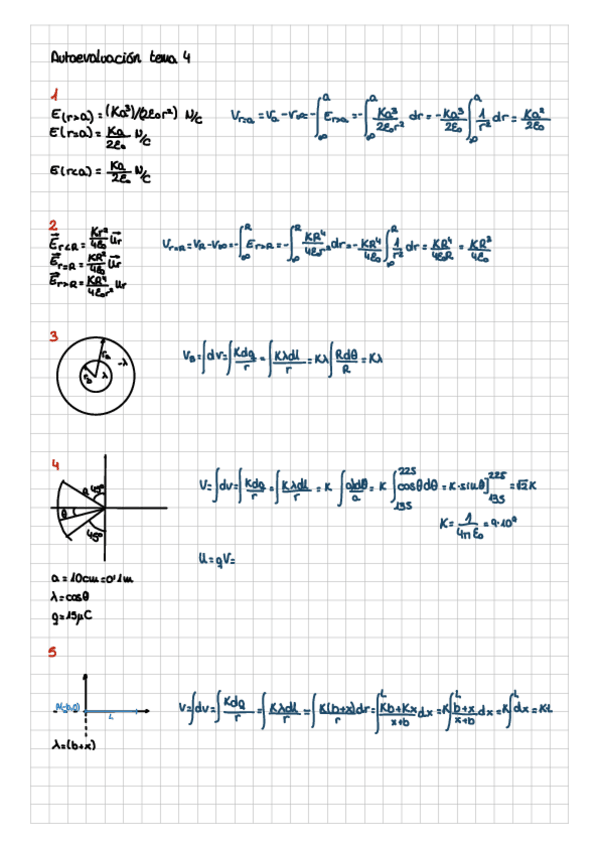 Autoevaluación tema 4
1
E(r>a) = (Ka³)/(2ε₀r²) N/C
E(r=a) = Ka/2ε₀ N/C
E(r<a) = Ka/2ε₀ N/C
V_{r=a} = V_a - V_∞ = -∫_∞^a E_{r>a} = -∫_∞^a Ka³/2ε₀r² dr = -Ka³/2ε₀ ∫_∞^a 1/r² dr = Ka²/2ε₀
2
E⃗_{r<R} = Kr²/4ε₀ u⃗r
E⃗_{r=R} = KR²/4ε₀ u⃗r
E⃗_{r>R} = KR⁴/4ε₀r² ur
V_{r=R} = V_R - V_∞ = -∫_∞^R E_{r>R} = -∫_∞^R KR⁴/4ε₀r² dr = -KR⁴/4ε₀ ∫_∞^R 1/r² dr = KR⁴/4ε₀R = KR³/4ε₀
3
-λ
λ
V_B = ∫dv = ∫Kdq/r = ∫Kλdl/r = Kλ∫Rdθ/R = Kλ
4
a 45º
θ
45º
V = ∫dv = ∫Kdq/r = ∫Kλdl/r = K∫aλdθ/a = K∫_{135}^{225} cosθdθ = K·sinθ]_{135}^{225} = √2K
K = 1/4πε₀ = 9·10⁹
U = qV =
a = 10cm = 0'1m
λ = cosθ
q = 15μC
5
L
V = ∫dv = ∫Kdq/r = ∫Kλdl/r = ∫K(b+x)dr/r = ∫^L Kb+Kx/x+b dx = K∫^L b+x/x+b dx = K∫^L dx = KL
λ = (b+x)